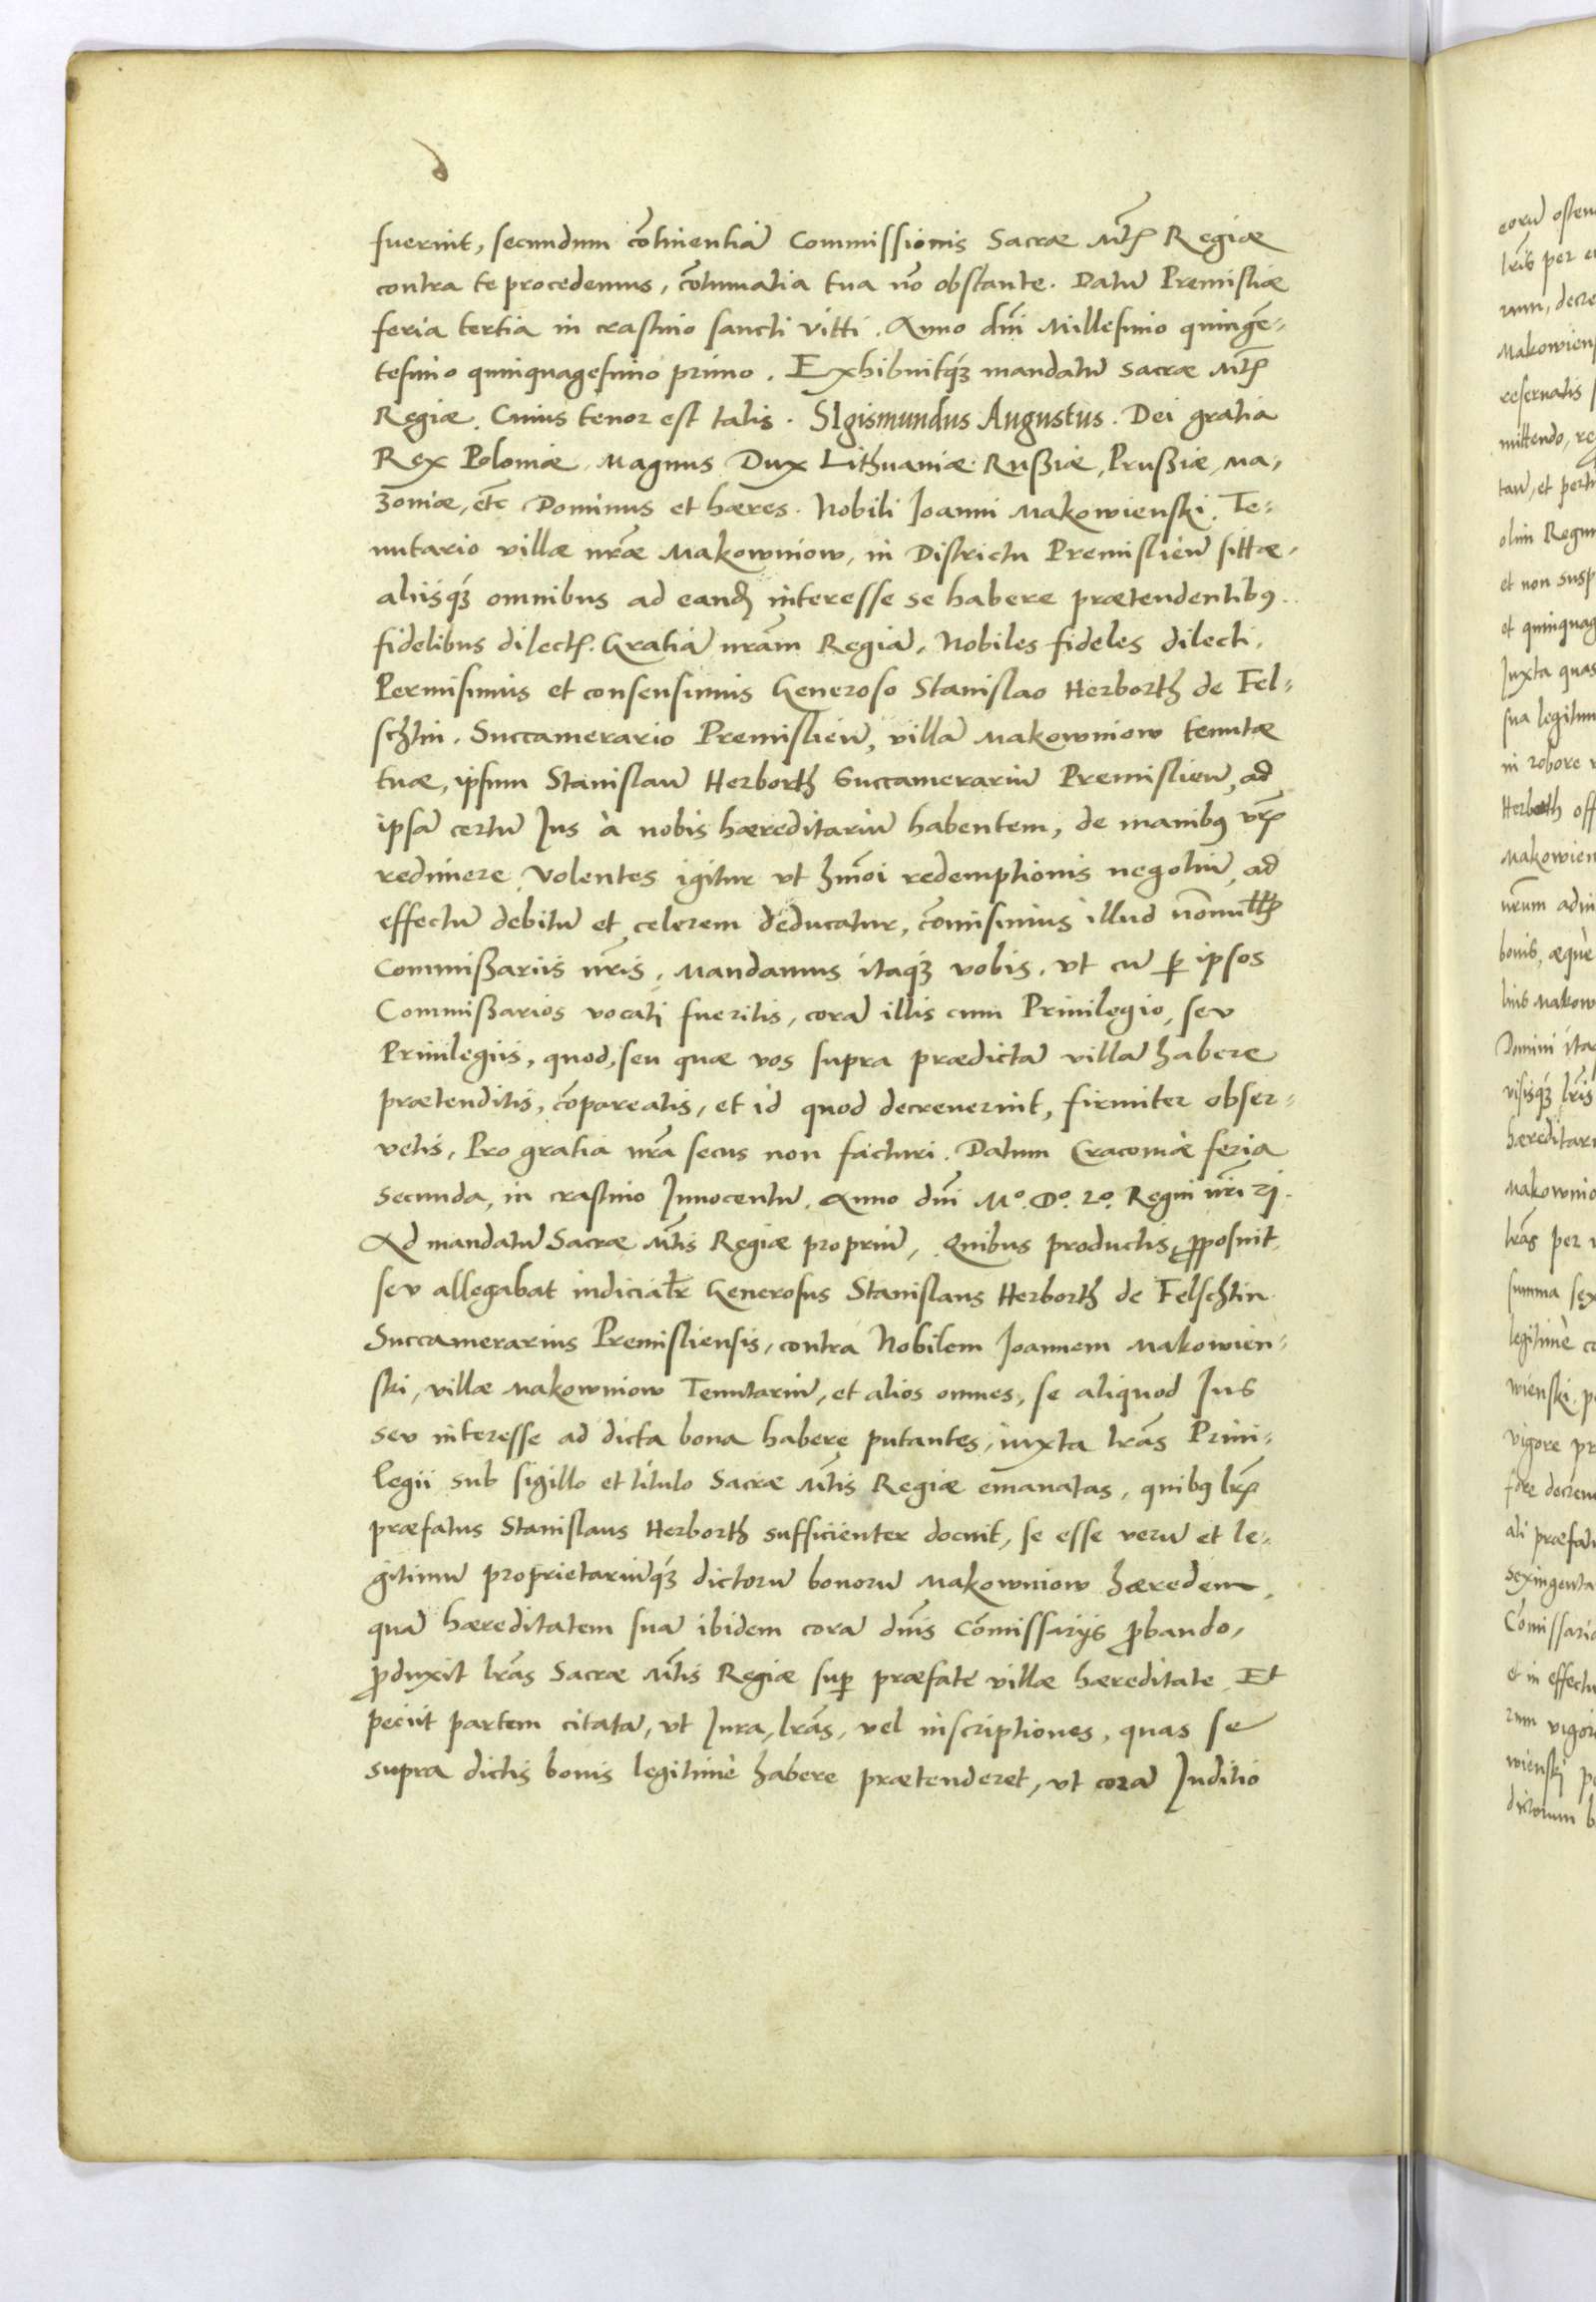 fuerint, secundum cōtinentiā Commissionis Sacræ Mtis Regiæ
contra te procedemus, cōtumatia tua nō obstante. Datū Premisliæ
feria tertia in crastino sancti Vitti. Anno dn̄i Millesimo quingē-
tesimo quinquagesimo primo. Exhibuitq́ꝫ mandatū Sacræ Mtis
Regiæ. Cuius tenor est talis. SIgismundus Augustus. Dei gratia
Rex Poloniæ, Magnus Dux Lithuaniæ. Rußiæ, Prußiæ, Ma-
zoniæ, etc̄ Dominus et hæres. Nobili Joanni Makowienski. Te-
nutario villæ nr̄æ Makowniow, in Districtu Premislien̄ sittæ,
aliisq́ꝫ omnibus ad eandꝫ interesse se habere prætendentibꝯ.
fidelibus dilectis. Gratiā nrām Regiā. Nobiles fideles dilecti.
Permisimus et consensimus Generoso Stanislao Herborth de Fel-
schtin. Succamerario Premislien̄, villā Makowniow tenutæ
tuæ, ipsum Stanislaū Herborth Succamerariū Premislien̄, ad
ipsā certū Jus à nobis hæreditariū habentem, de manibꝯ vr̄is
redimere. Volentes igitur vt hmōi redemptionis negotiū, ad
effectū debitū et celerem deducatur, cōmisimus illud nōnullis
Commißariis nr̄is. Mandamus itaq́ꝫ vobis, vt cū ꝑ ipsos
Commißarios vocati fueritis, corā illis cum Priuilegio, sev
Priuilegiis, quod, seu quæ vos supra prædictā villā habere
prætenditis, cōpareatis, et id quod decreuerint, firmiter obser-
vetis, Pro gratia nrā secus non facturi. Datum Cracouiæ feria
secunda, in crastino Innocentū. Anno dn̄i Mo. Do. Lo. Regni nr̄i 21.
Ad mandatū Sacræ Mtis Regiæ propriū, Quibus productis, ꝓposuit
sev allegabat iudicialr̄ Generosus Stanislaus Herborth de Felschtin
Succamerarius Premisliensis, contra Nobilem Joannem Makowien-
ski, villæ Makowniow Tenutariū, et alios omnes, se aliquod Jus
sev interesse ad dicta bona habere putantes, iuxta lrās Priui-
legii sub sigillo et titulo Sacræ Mtis Regiæ emanatas, quibꝯ lr̄is
præfatus Stanislaus Herborth sufficienter docuit, se esse verū et le-
gitimū proprietariūq́ꝫ dictorū bonorū Makowniow hæredem,
quā hæreditatem suā ibidem corā dn̄is Cōmissarijs ꝓbando,
ꝓduxit lrās Sacræ Mtis Regiæ suꝑ præfate villæ hæreditate. Et
peciit partem citatā, vt Jura, lrās, vel inscriptiones, quas se
supra dictis bonis legitimè habere prætenderet, vt corā Juditio